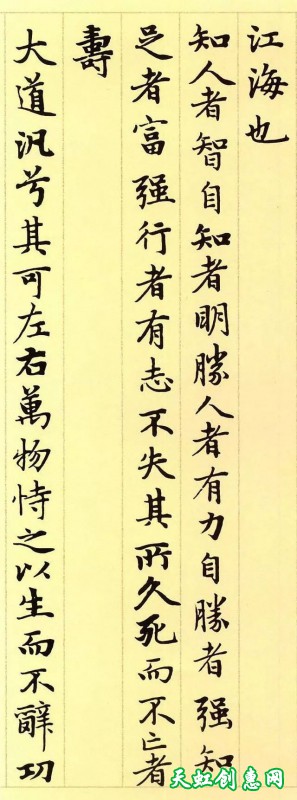 江海也
知人者智自知者明勝人者有力自勝者强知
足者富强行者有志不失其所久死而不亡者
壽
大道汎兮其可左右萬物恃之以生而不辭功
天虹创惠网